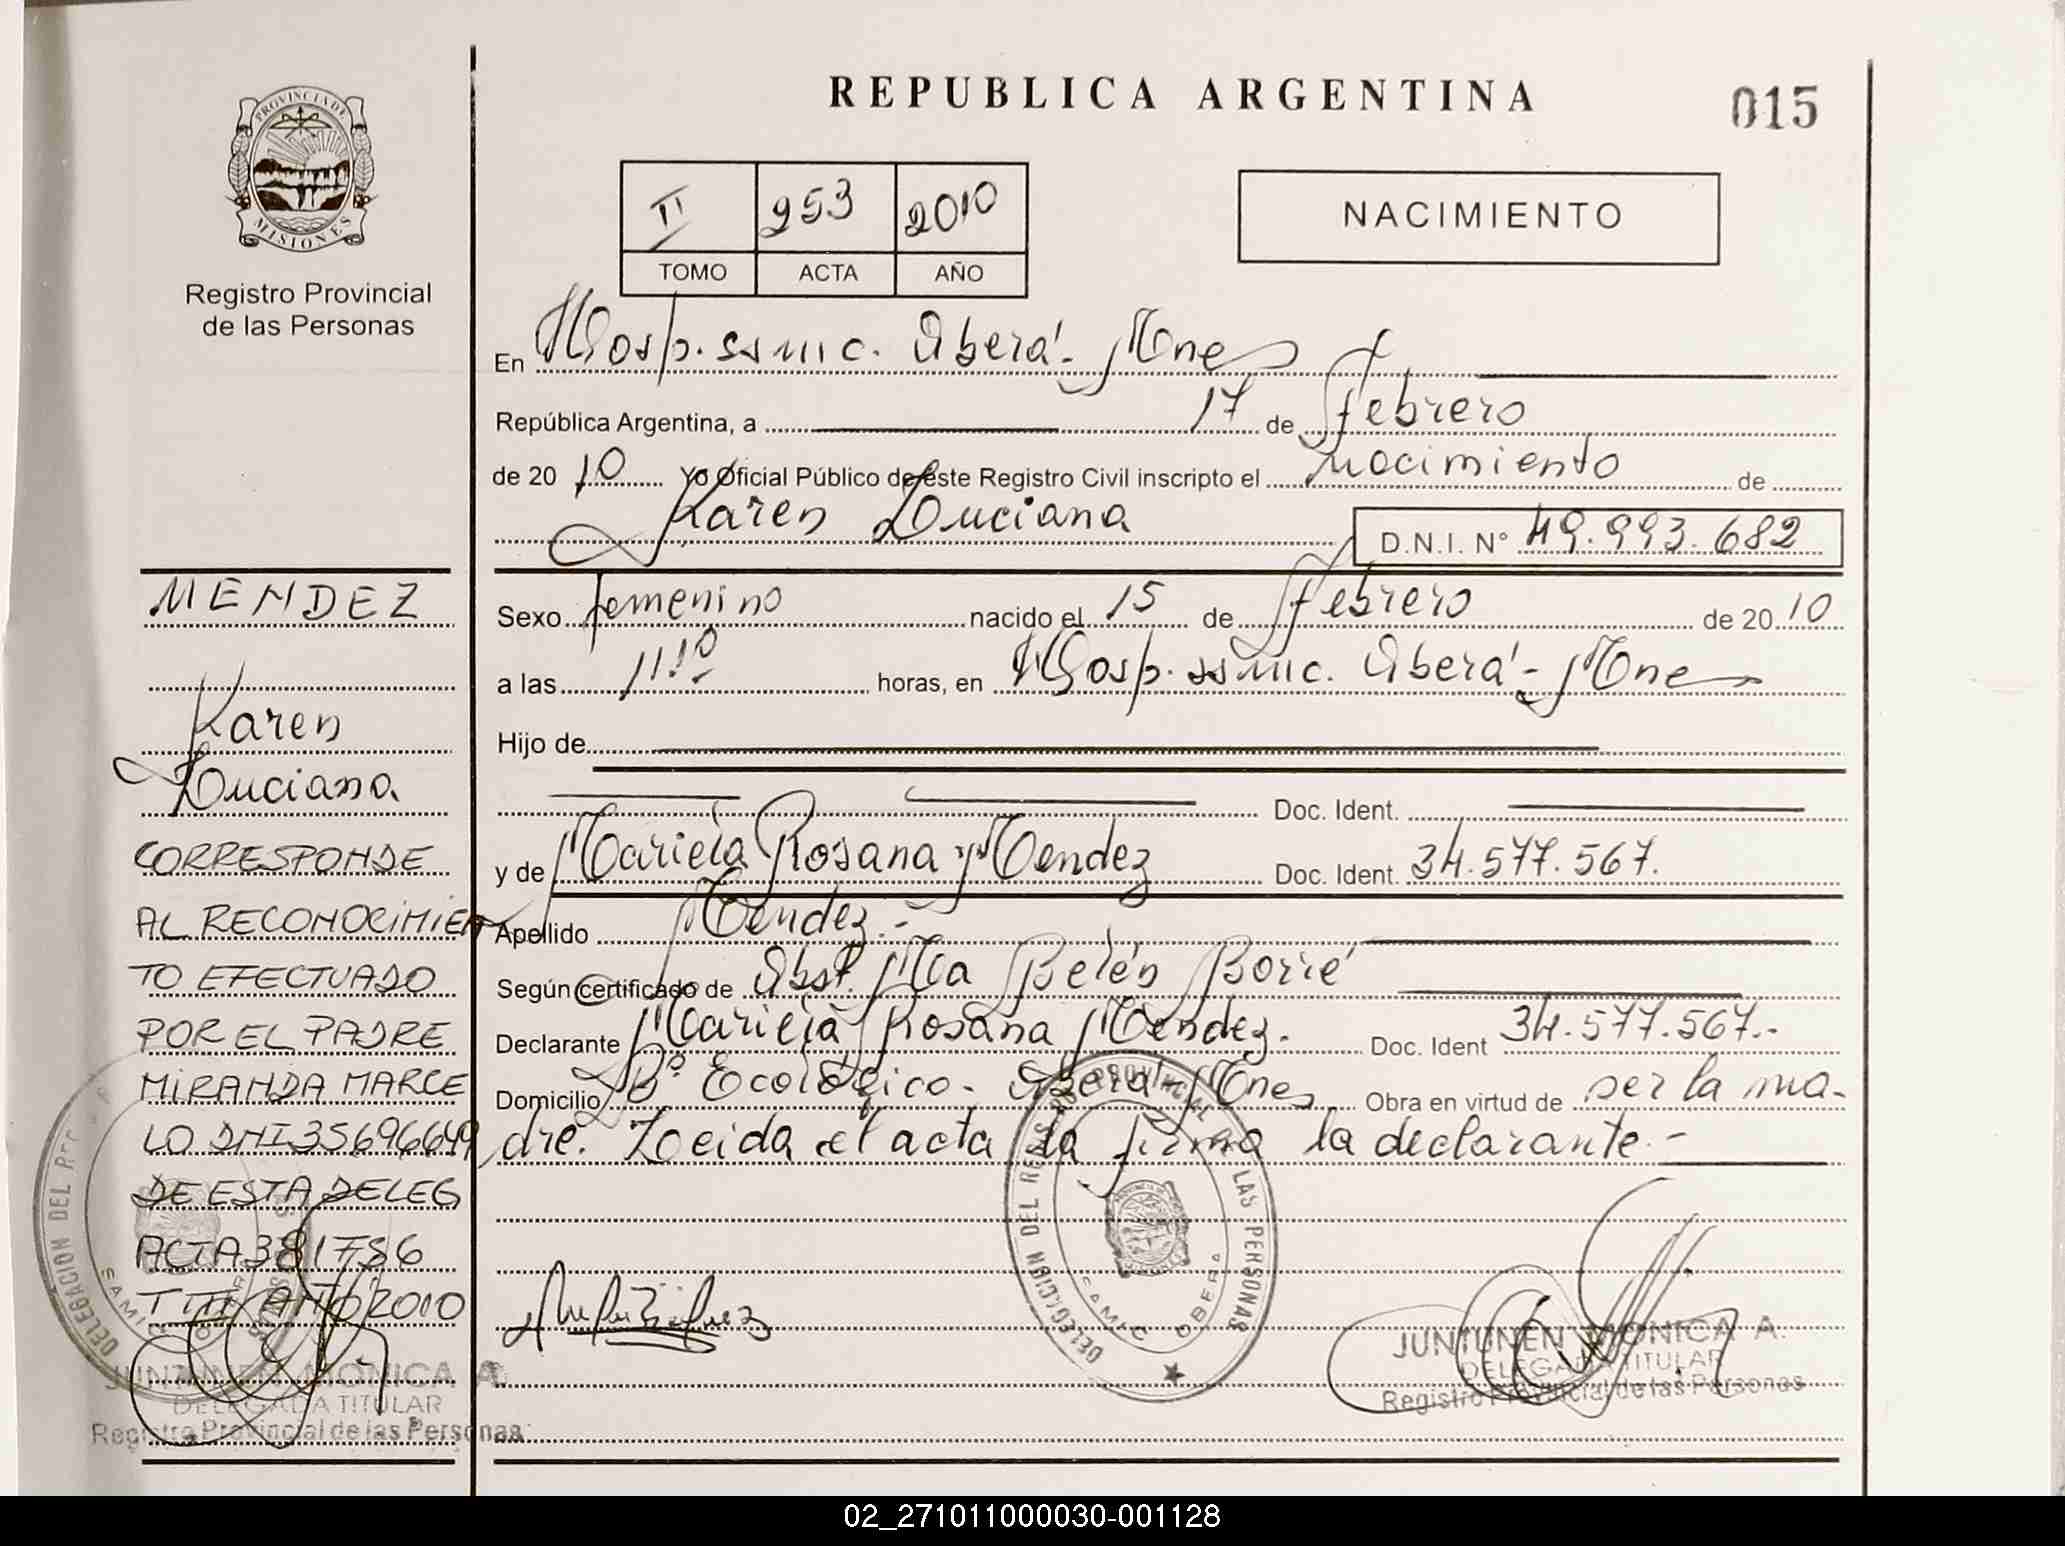 REPUBLICA ARGENTINA
015
PROVINCIA DE
MISIONES
Registro Provincial
de las Personas
II 253 2010
TOMO ACTA AÑO
NACIMIENTO
En Hosp. SAMIC. Oberá - Mnes
República Argentina, a 17 de febrero
de 20 10 Yo Oficial Público de este Registro Civil inscripto el nacimiento de
Karen Luciana D.N.I. N° 49.993.682
Sexo femenino nacido el 15 de febrero de 20 10
a las 11.10 horas, en Hosp. SAMIC. Oberá - Mnes
Hijo de
Doc. Ident.
y de Mariela Rosana Mendez Doc. Ident. 34.577.567.
Apellido Mendez.-
Según certificado de Obst. Ma Belén Borré
Declarante Mariela Rosana Mendez. Doc. Ident 34.577.567.-
Domicilio B° Ecológico - Oberá - Mnes Obra en virtud de ser la ma-
dre. Leida el acta la firma la declarante.-
DELEGACION DEL REG. PROVINCIAL DE LAS PERSONAS
SAMIC OBERA
JUNTUNEN MONICA A.
DELEGADA TITULAR
Registro Provincial de las Personas
MENDEZ
Karen
Luciana
CORRESPONDE
AL RECONOCIMIEN
TO EFECTUADO
POR EL PADRE
MIRANDA MARCE
LO DNI 35696649
DE ESTA DELEG
ACTA 381 F56
T III AÑO 2010
JUNTUNEN MONICA A.
DELEGADA TITULAR
Registro Provincial de las Personas
02_271011000030-001128